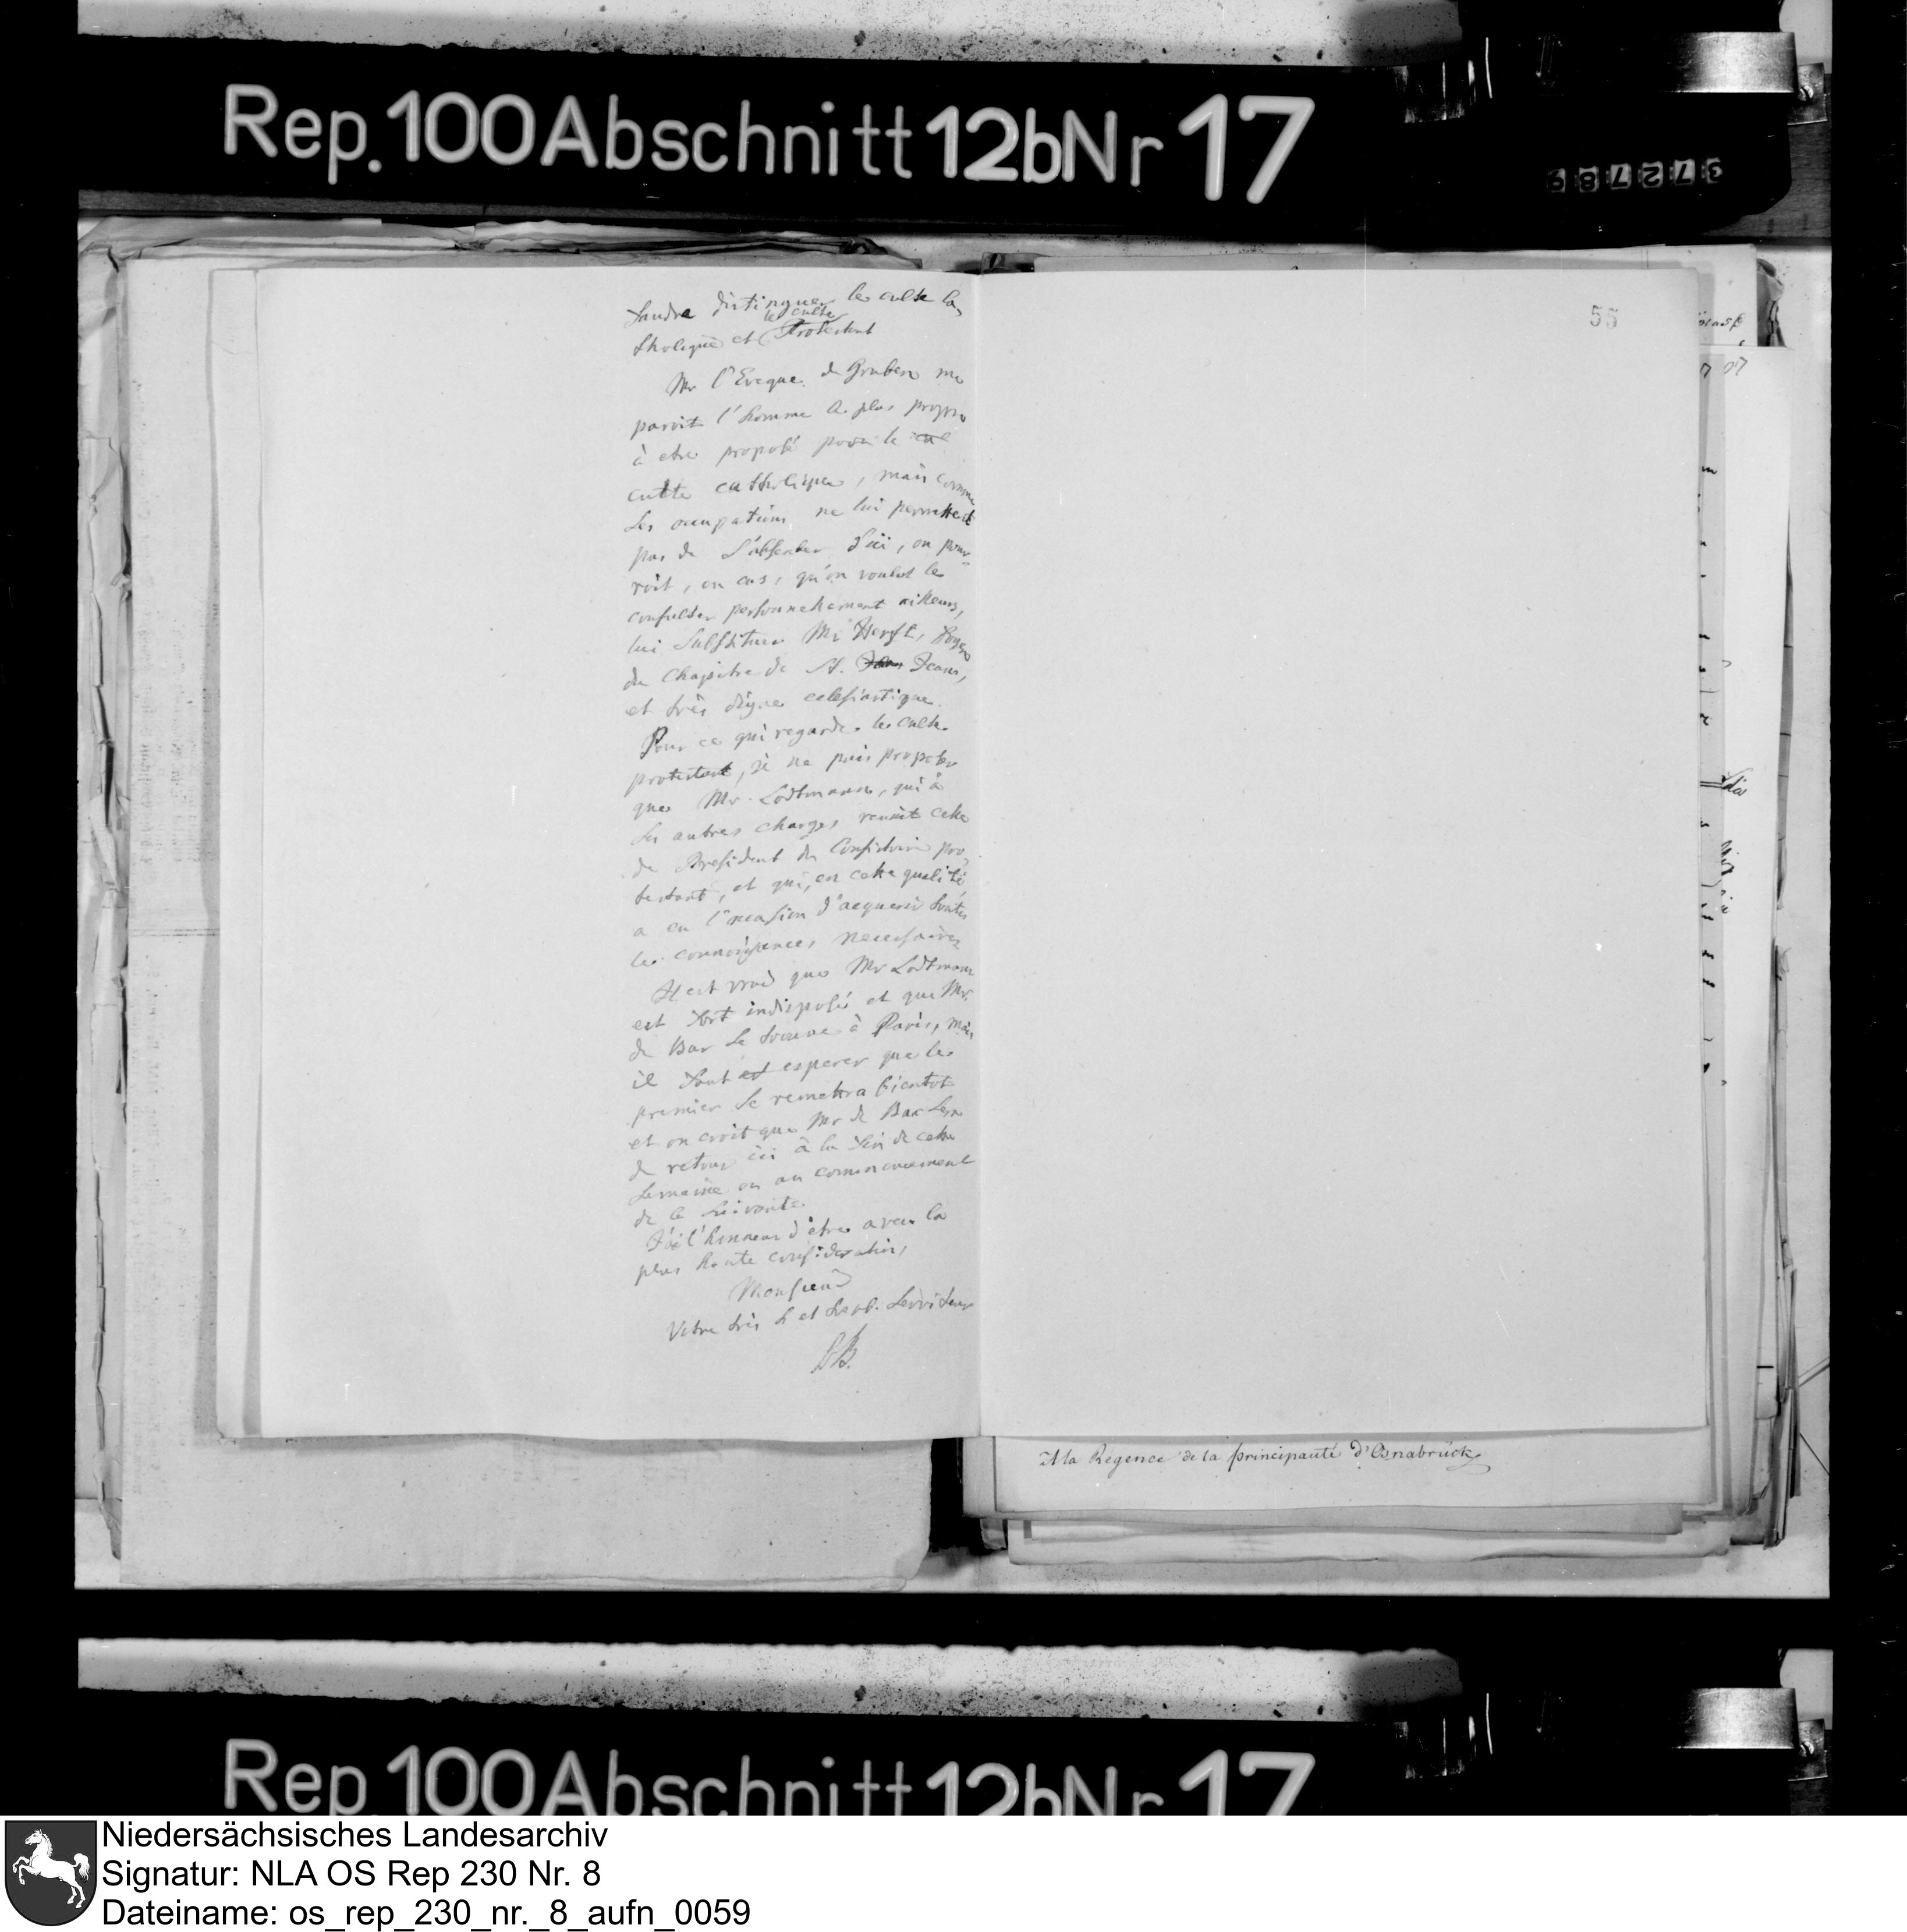 Rep. 100 Abschnitt 12b Nr 17
372789
faudra distinguer le culte ca
tholique et le culte Protestant
Mr l'Eveque de Gruben me
paroit l'homme le plus propre
à etre proposé pour le
culte catholique, mais comme
ses occupations ne lui permettent
pas de s'absenter d'ici, on pour=
roit, en cas, qu'on voulut le
consulter personnellement ailleurs,
lui substituer Mr Herft, Doyen
du Chapitre de St. Jean,
et très digne eclesiastique.
Pour ce qui regarde le culte
protestant, je ne puis proposer
que Mr. Lodtmann, qui à
ses autres charges reunit celle
de President du Consistoire pro,
testant, et qui, en cette qualité,
a eu l'occasion d'acquerir toutes
les connoissances necessaires
Il est vrai que Mr Lodtmann
est fort indisposé et que Mr.
de Bar se trouve à Paris, mais
il faut esperer que le
premier se remettra bientot
et on croit que Mr de Bar sera
de retour ici à la fin de cette
semaine ou au commencement
de la suivante.
J'ai l'honneur d'etre avec la
plus haute consideration,
Monsieur
Votre très h et serviteur
55
A la Régence de la principauté d'Osnabrück
Rep 100 Abschnitt 12b Nr 17
Niedersächsisches Landesarchiv
Signatur: NLA OS Rep 230 Nr. 8
Dateiname: os_rep_230_nr._8_aufn_0059